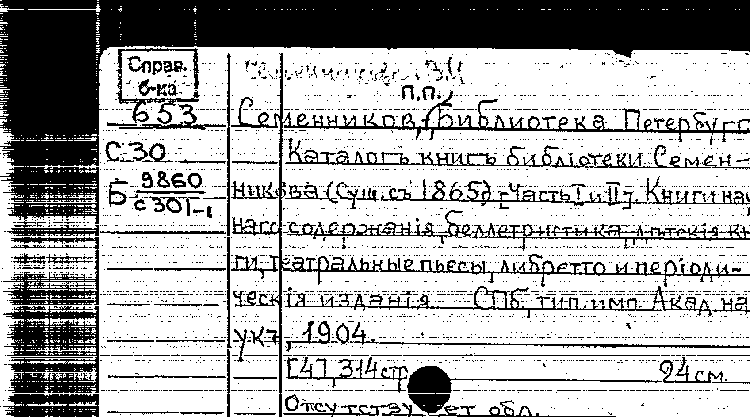 Справ.
б-ка
653
С30
Б 9860
с301-1
п.п.,
Семенников, Библиотека Петербургс
Каталогъ книгъ библіотеки Семен-
никова (Сущ. съ 1865) [Часть I и II]. Книги науч
наго содержанія, беллетристика, дѣтскія кн
ги, театральные пьесы, либретто и періоди-
ческія изданія. СПб, тип. имп. Акад. на
укъ, 1904.
[4], 314 стр. 24 см.
Отсутствует обл.